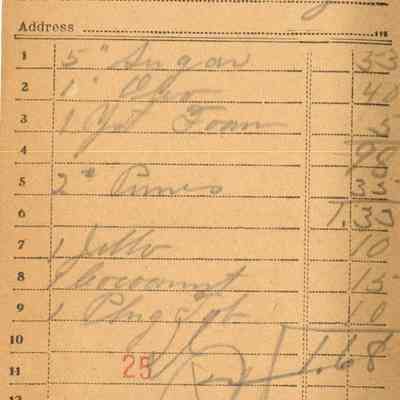 Address
1 5 " Sugar 53
2 1 " Oleo 40
3 1 Yst Foam 5
4 98
5 2 " Prunes 35
6 1.33
7 1 Jello 10
8 1 Cocoanut 15
9 1 Plug Tob 10
10 1.68
11 25
12